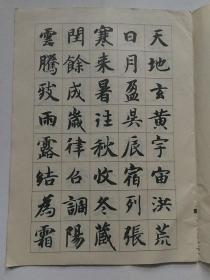 天地玄黄宇宙洪荒
日月盈昃辰宿列張
寒来暑往秋收冬藏
閏餘成歲律吕調陽
雲騰致雨露結為霜